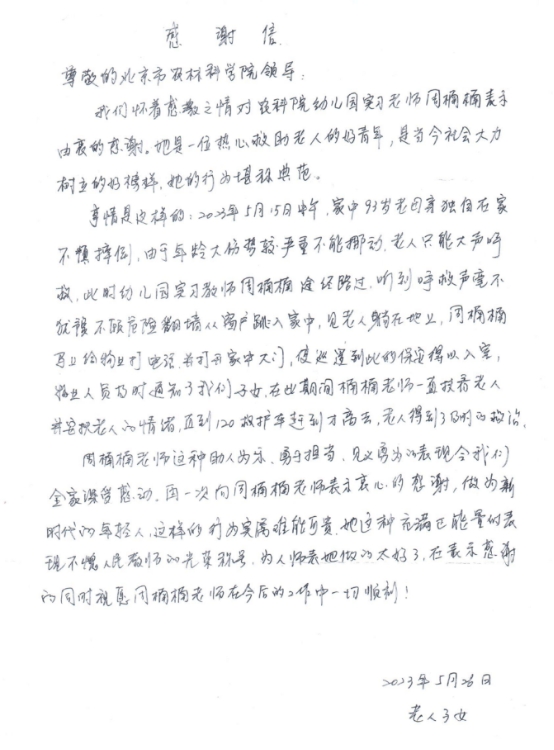 感谢信
尊敬的北京市农林科学院领导:
我们怀着感激之情对农科院幼儿园实习老师周楠楠表示
由衷的感谢。她是一位热心救助老人的好青年,是当今社会大力
树立的好榜样,她的行为堪称典范。
事情是这样的:2023年5月15日中午,家中93岁老母亲独自在家
不慎摔倒,由于年龄大伤势较严重不能挪动,老人只能大声呼
救,此时幼儿园实习教师周楠楠途经路过,听到呼救声毫不
犹豫不顾危险翻墙从窗户跳入家中,见老人躺在地上,周楠楠
马上给物业打电话并打开家中大门,使巡逻到此的保安得以入室,
物业人员及时通知了我们子女,在此期间楠楠老师一直扶着老人
并安抚老人的情绪,直到120救护车赶到才离去,老人得到了及时的救治。
周楠楠老师这种助人为乐、勇于担当、见义勇为的表现令我们
全家深受感动,再一次向周楠楠老师表示衷心的感谢,做为新
时代的年轻人,这样的行为实属难能可贵,她这种充满正能量的表
现不愧人民教师的光荣称号,为人师表她做的太好了,在表示感谢
的同时祝愿周楠楠老师在今后的工作中一切顺利!
2023年5月26日
老人子女